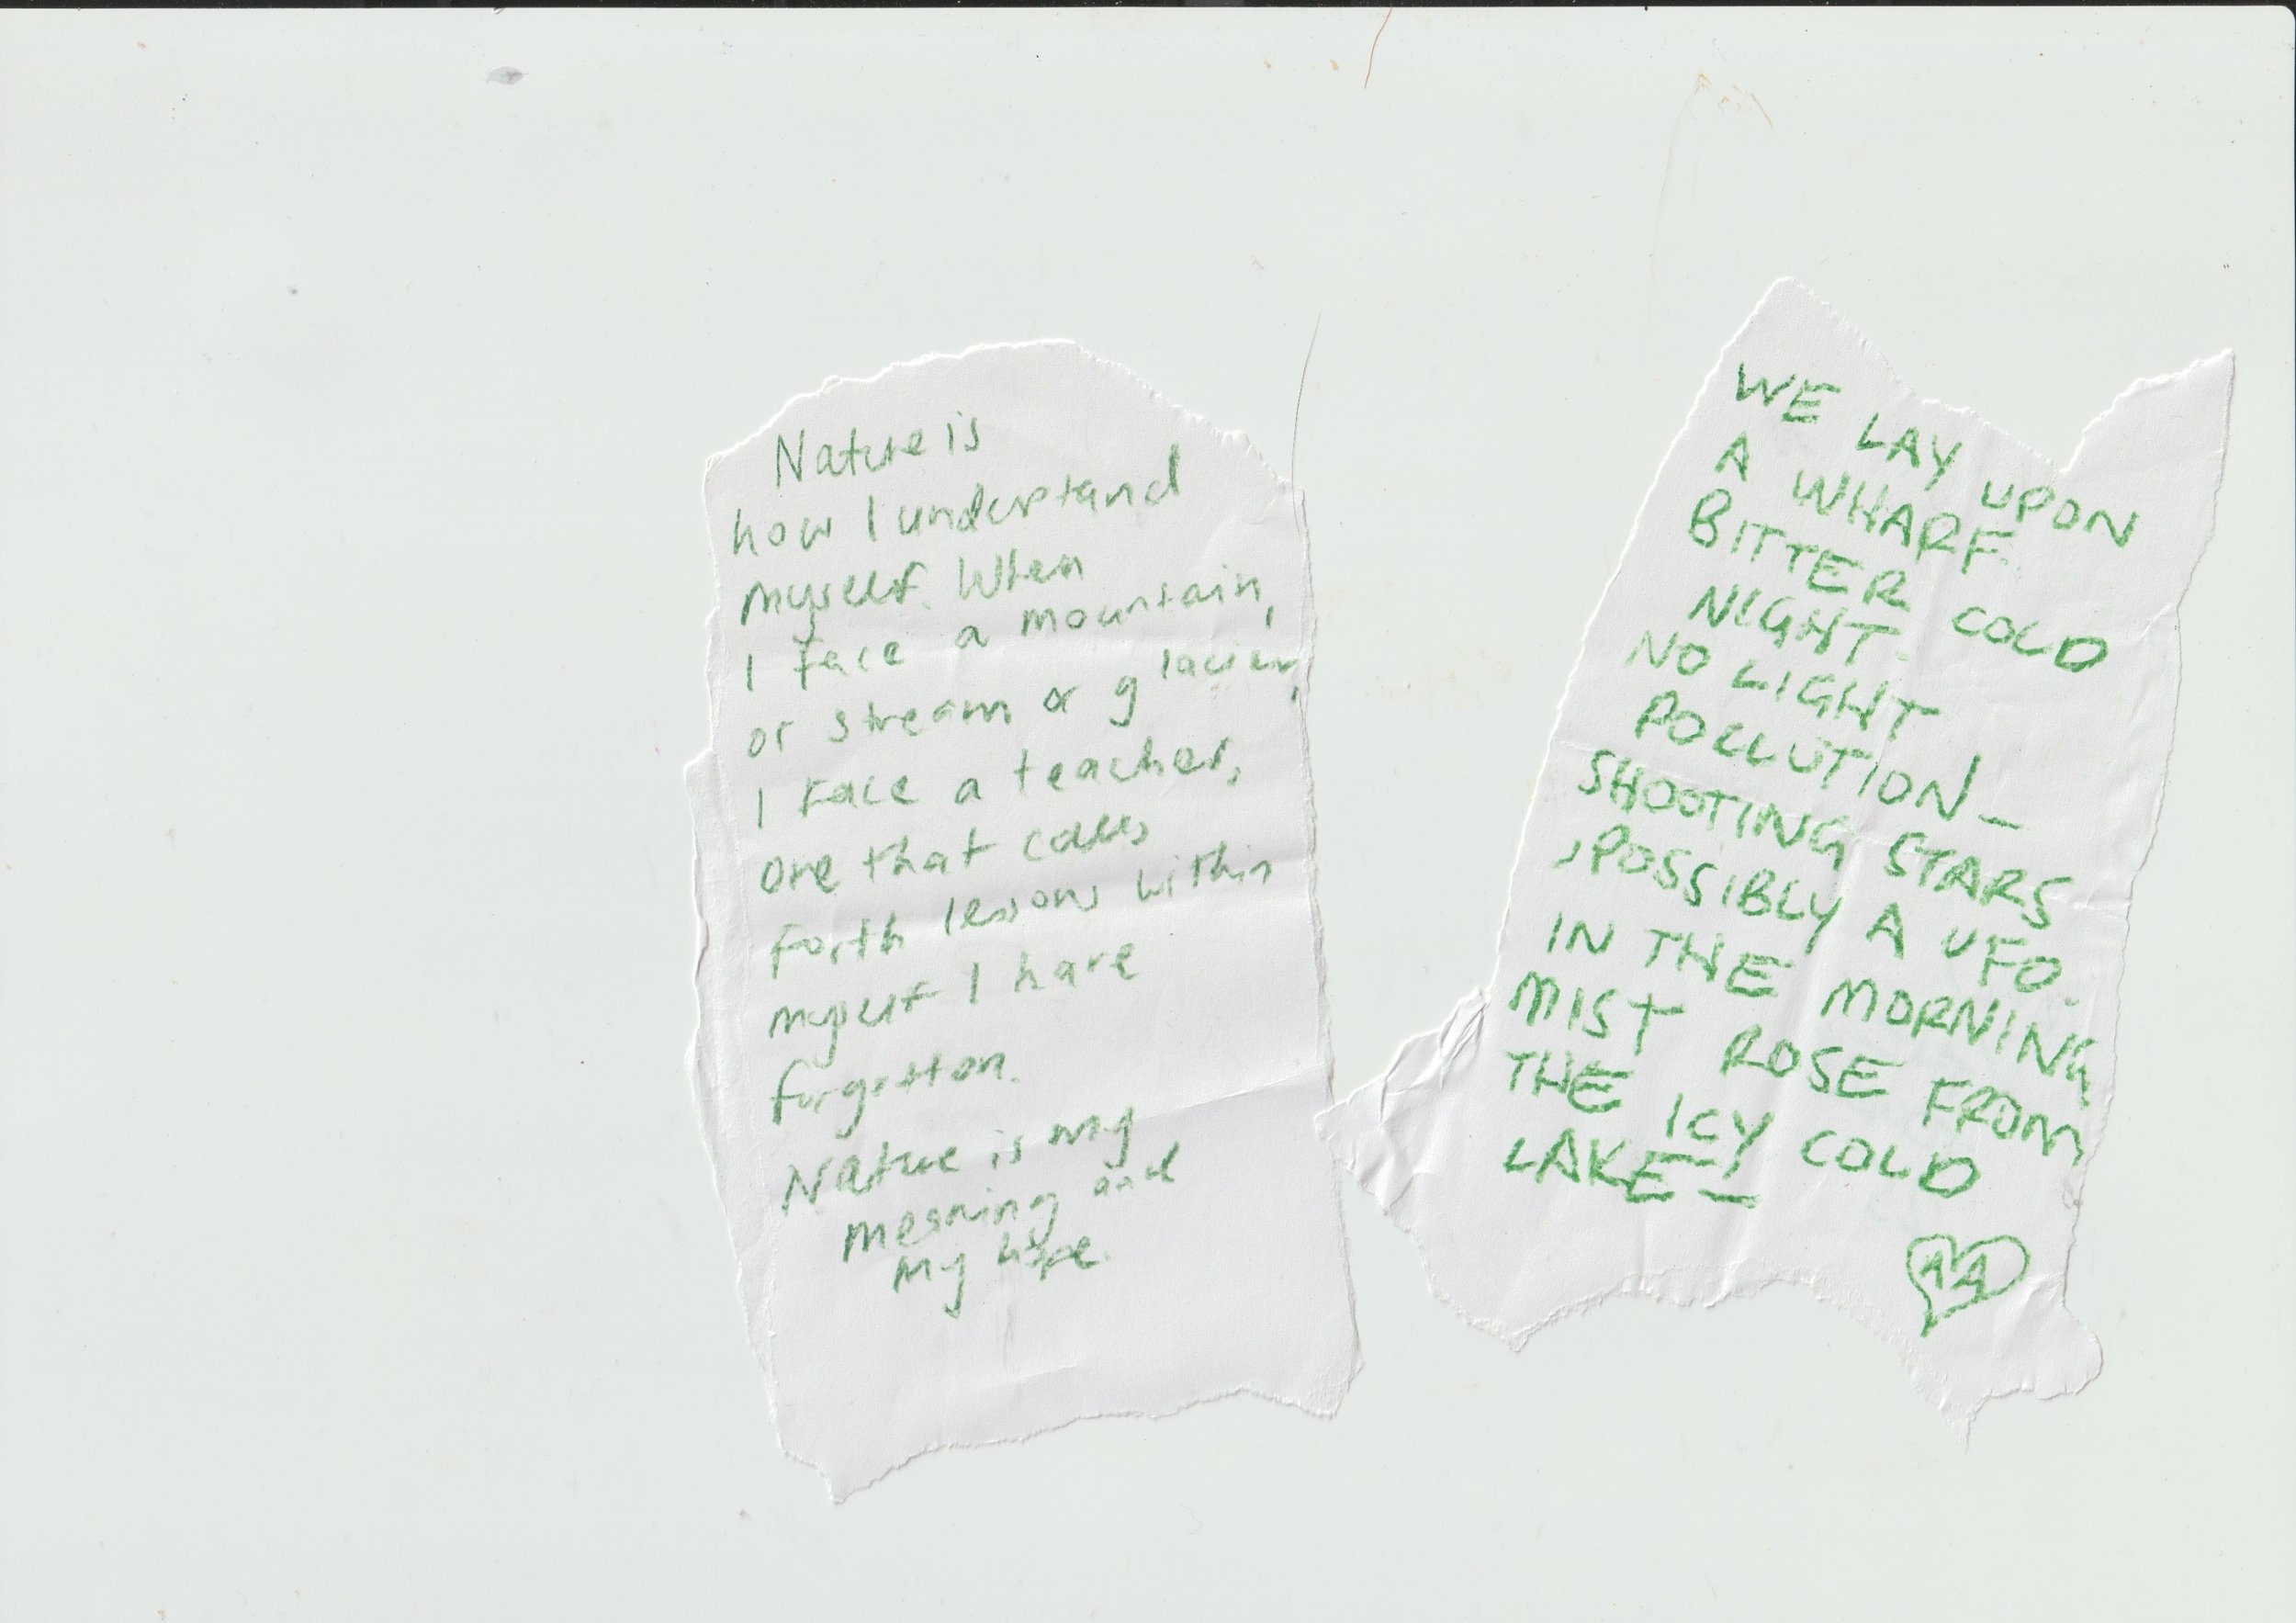 Nature is
how I understand
myself. When
I face a mountain,
or stream or glacier,
I face a teacher,
one that calls
forth lessons within
myself I have
forgotton.
Nature is my
meaning and
my hope.
WE LAY UPON
A WHARF.
BITTER COLD
NIGHT.
NO LIGHT
POLLUTION—
SHOOTING STARS
,POSSIBLY A UFO.
IN THE MORNING
MIST ROSE FROM
THE ICY COLD
LAKE—
AA